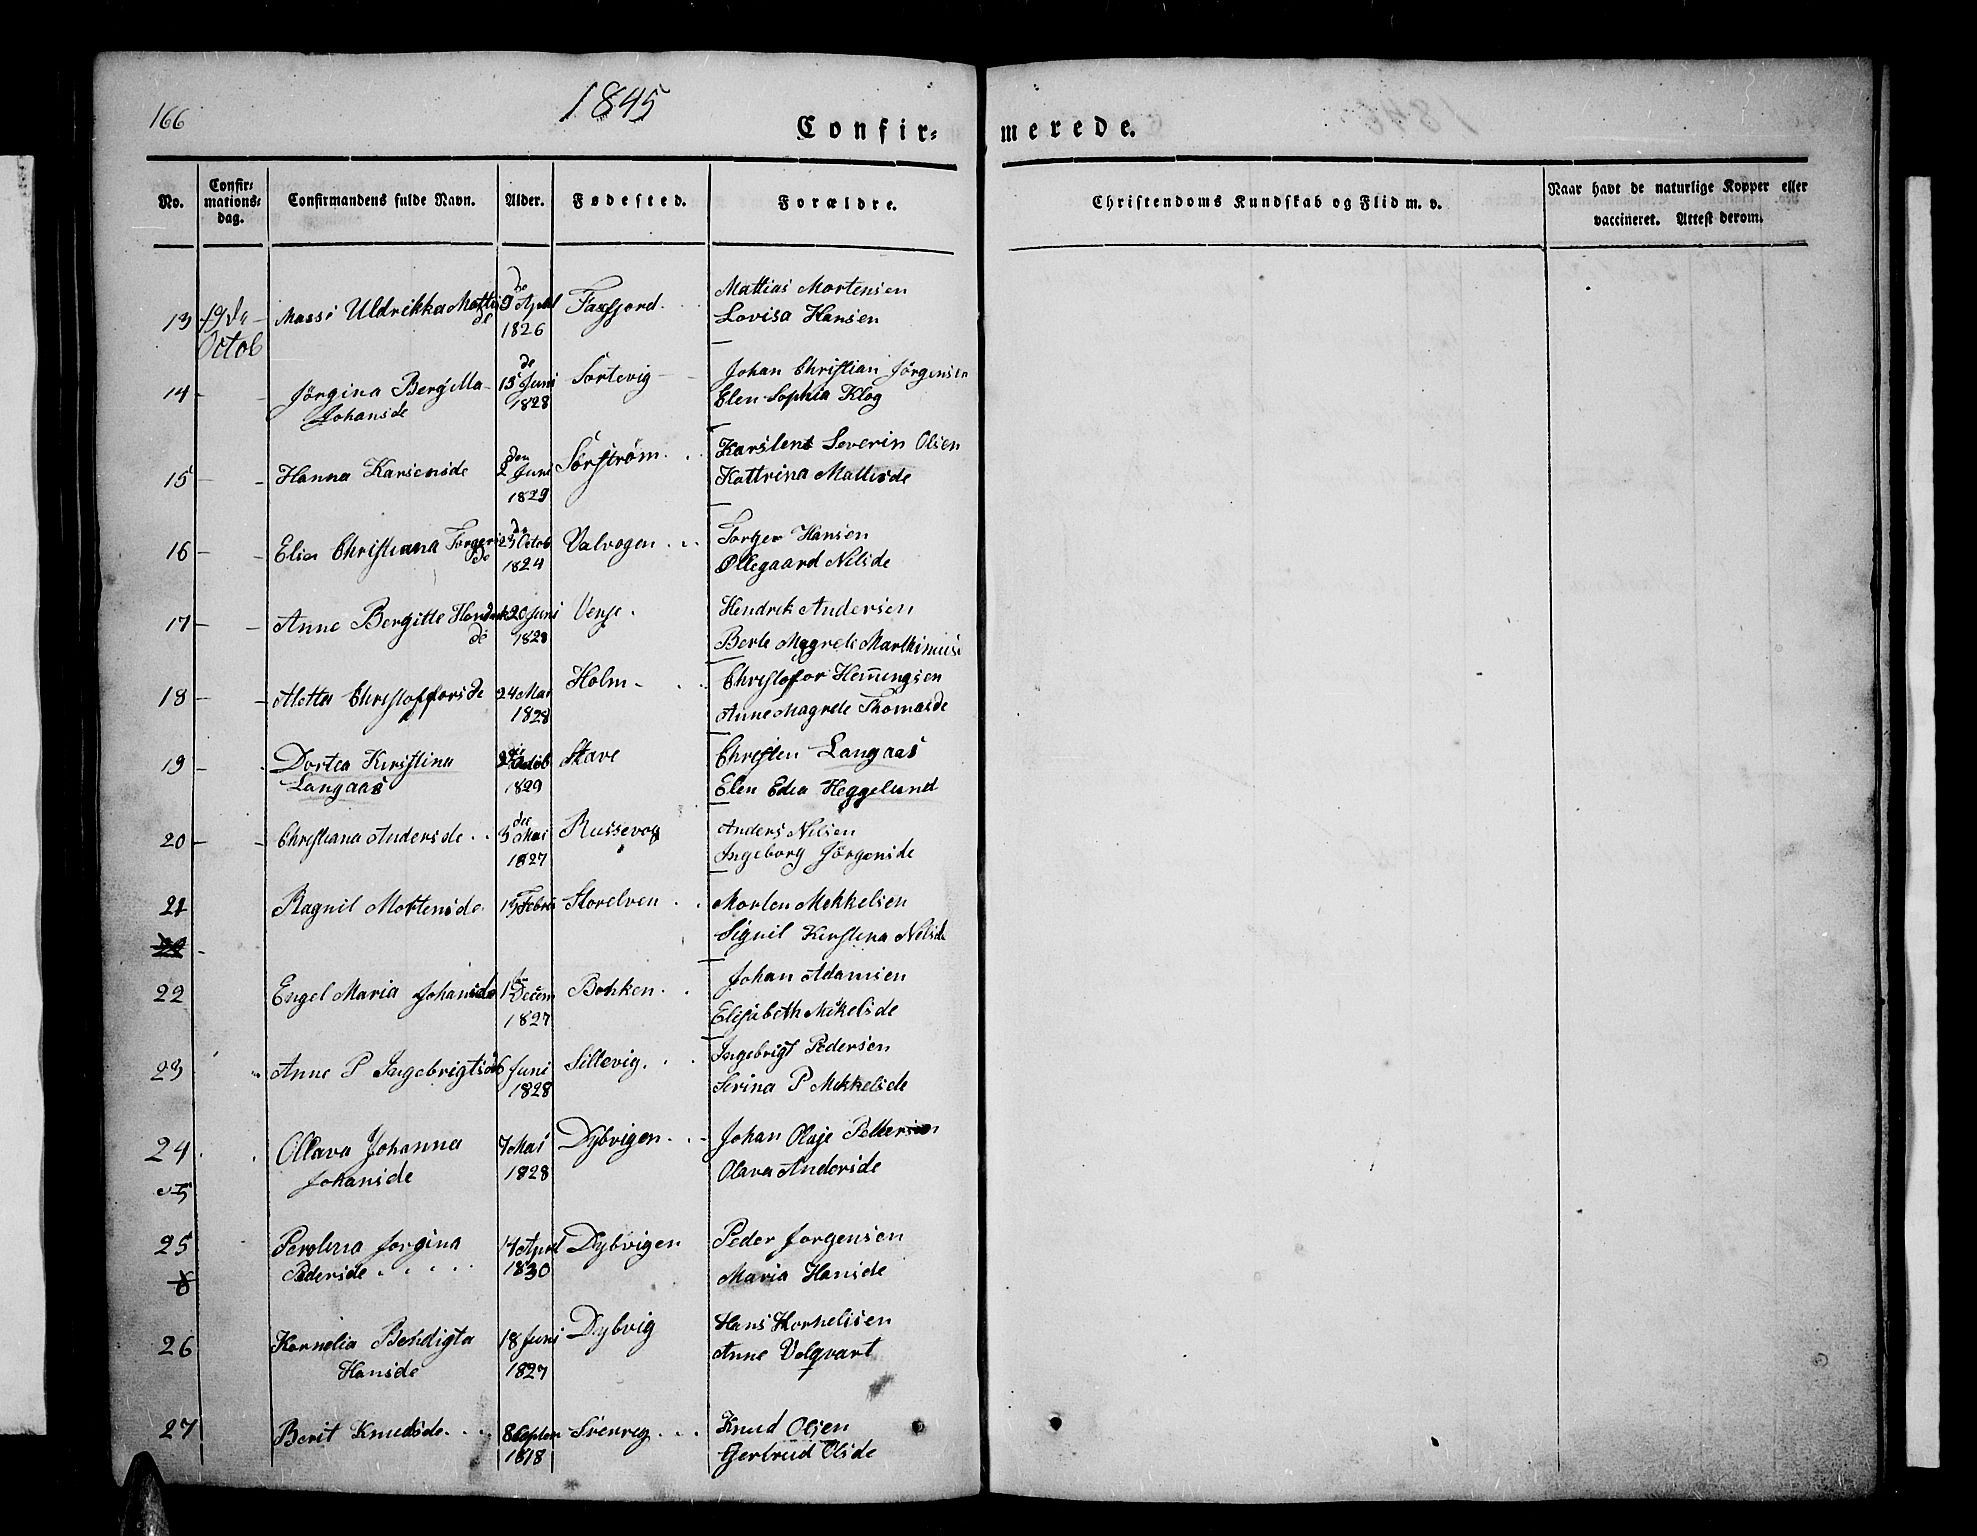 166
1845
Confir=
merede.
No.
Confir=
mations=
dag.
Confirmandens fulde Navn.
Alder.
Fødested.
Forældre.
Christendoms Kundskab og Flid m. v.
Naar havt de naturlige Kopper eller
vaccineret. Attest derom.
13 19de Massi Uldrikka April Mattias Mortensen
Octob de 1826 Lovisa Hansen
14 Jørgina Bergilla 13 Juni Sortevig Johan Christian Jörgensen
Johansde 1828 Elen Sophia Klog
15 Hanna Karsensde den 2 Juni Sørstrøm Karstens Severin Olsen
1829 Kattrina Mattisde
16 Elen Christiana de 23 Octob Valvogen Torger Hansen
de 1824 Ollegaard Nilsde
17 Anne Bergitte 20 Juni Venje Hendrik Andersen
de 1828 Berte Magrete
18 Christoffersde 24 Mai Holm Christofor Hemingsen
1828 Anne Magrete Thomasde
19 Dortea Kirstina Octob Stave Christen Langaas
Langaas 1829 Elen Edea Heggelund
20 Christiana Andersde 3 Mai Russevog Anders Nilsen
1827 Ingeborg Jörgensde
21 Ragnil Mortensde Febru Storelven Morten Mekkelsen
Signil Kirstina Nilsde
22 Engel Maria Johansde Decem Bokken Johan Adamsen
1827 Elisabeth Mikelsde
23 Anne P Ingebrigtsde 6 Juni Sillevig Ingebrigt Pedersen
1828 Serina P Mekkelsde
24 Olava Johanna 7 Mai Dybvigen Johan Olaje Pettersen
Johansde 1828 Olava Andersde
25 Perolena Jorgina 14 April Dybvigen Peder Jorgensen
Pedersde 1830 Maria Hansde
26 Kornelia Bendigta 18 Juni Dybvig Hans Kornelisen
Hansde 1827 Anne Volqvart
27 Berit Knudsde 8 Septem Knud Olsen
1818 Gertrud Olsde